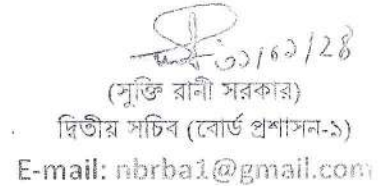 ৩১/০১/২৪
(সুক্তি রানী সরকার)
দ্বিতীয় সচিব (বোর্ড প্রশাসন-১)
E-mail: nbrba1@gmail.com